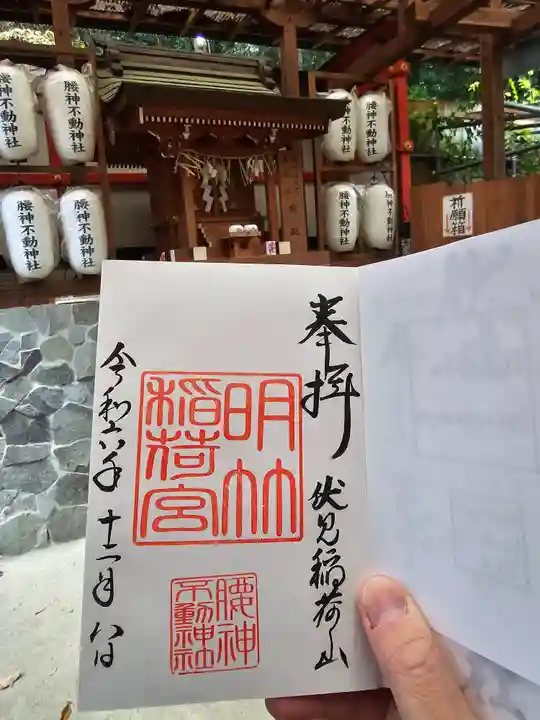 腰神不動神社
腰神不動神社
腰神不動神社
腰神不動神社
腰神不動神社
腰神不動神社
腰神不動神社
腰神不動神社
祈願箱
奉拝
伏見稲荷山
明竹
稲荷宮
腰神
不動神社
令和六年十二月八日